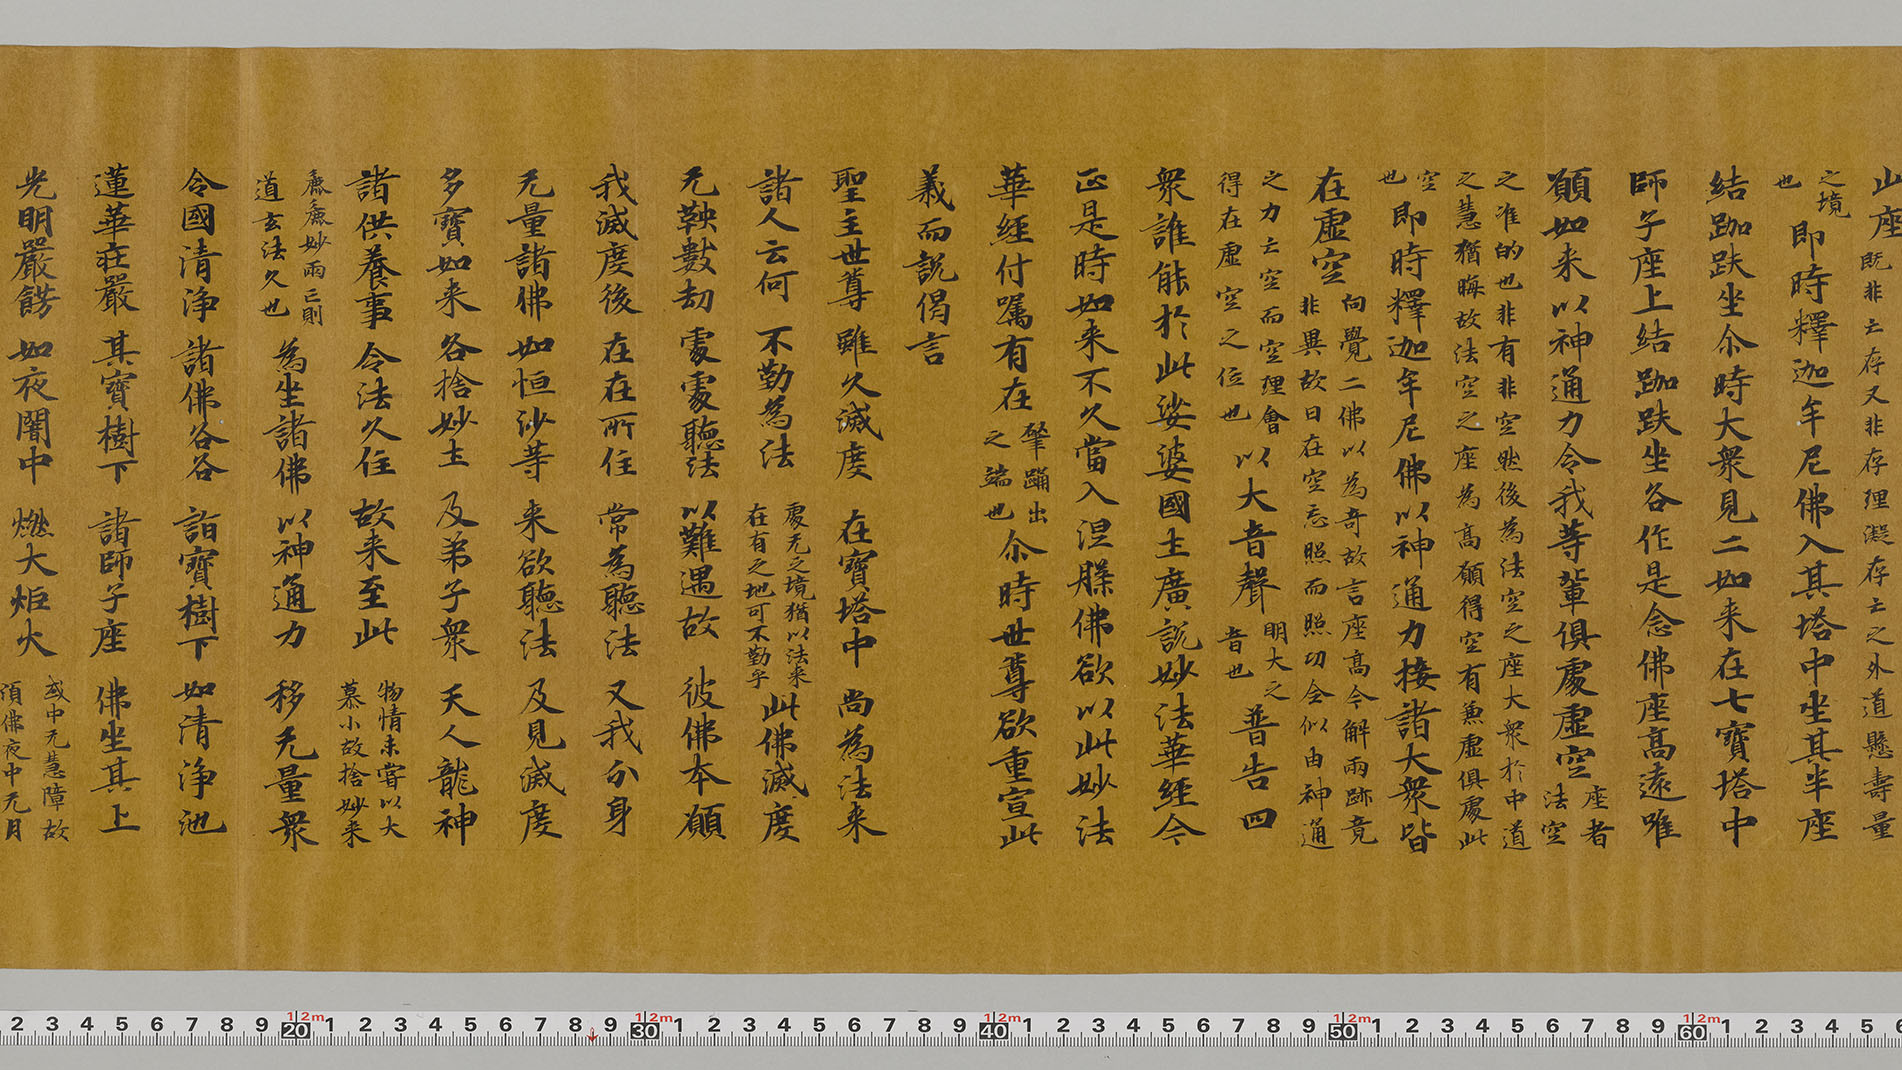 座既非亡存又非存理凝存亡之外道懸壽量
之境也即時釋迦牟尼佛入其塔中坐其半座
結跏趺坐尒時大衆見二如来在七寳塔中
師子座上結跏趺坐各作是念佛座高遠唯
願如来以神通力令我等輩俱處虚空座者法空
之准的也非有非空然後為法空之座大衆於中道
之慧猶晦故法空之座為高願得空有兼虚俱處此
空也即時釋迦牟尼佛以神通力接諸大衆皆
在虚空向覺二佛以為奇故言座高今解兩跡竟
非異故曰在空忘照而照功会似由神通
之力亡空而空理會得在虚空之位也以大音聲明大之音也普告四
衆誰能於此娑婆國土廣説妙法華經今
正是時如来不久當入涅槃佛欲以此妙法
華經付嘱有在肇踊出之端也尒時世尊欲重宣此
義而説偈言
聖主世尊 雖久滅度 在寳塔中 尚為法来
諸人云何 不勤為法 處无之境猶以法来在有之地可不勤乎 此佛滅度
无鞅數劫 處處聽法 以難遇故 彼佛本願
我滅度後 在在所住 常為聽法 又我分身
无量諸佛 如恒沙等 来欲聽法 及見滅度
多寳如来 各捨妙土 及弟子衆 天人龍神
諸供養事 令法久住 故来至此 物情未甞以大慕小故捨妙来
麁麁妙兩亡則道玄法久也 為坐諸佛 以神通力 移无量衆
令國清浄 諸佛各各 詣寳樹下 如清浄池
蓮華莊嚴 其寳樹下 諸師子座 佛坐其上
光明嚴餝 如夜闇中 燃大炬火 或中无慧障故須佛夜中无月
2 3 4 5 6 7 8 9 20 1 2 3 4 5 6 7 8 9 30 1 2 3 4 5 6 7 8 9 40 1 2 3 4 5 6 7 8 9 50 1 2 3 4 5 6 7 8 9 60 1 2 3 4 5 6
12m 12m 12m 12m 12m